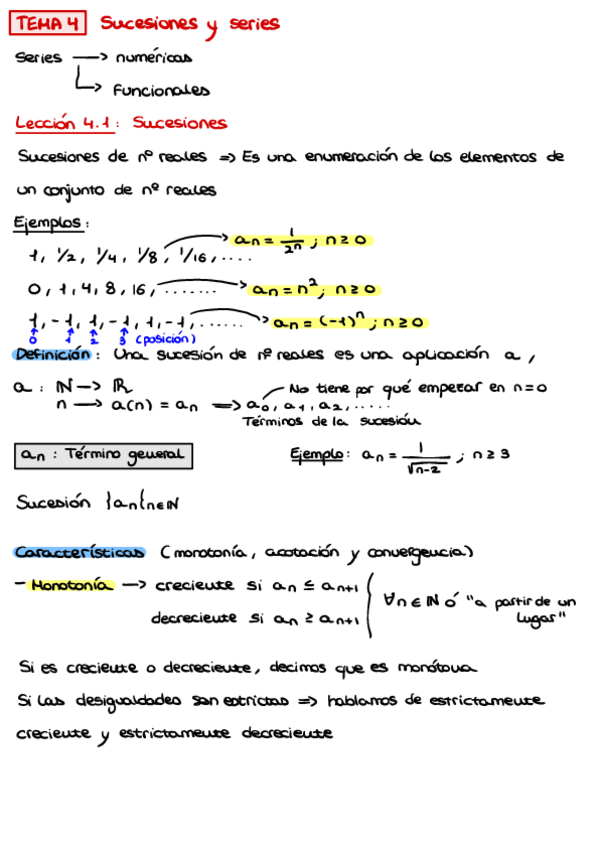 TEMA 4 Sucesiones y series
Series → numéricas
↳ Funcionales
Lección 4.1: Sucesiones
Sucesiones de nº reales => Es una enumeración de los elementos de
un conjunto de nº reales
Ejemplos:
1, 1/2, 1/4, 1/8, 1/16, .... → an = 1/2^n ; n ≥ 0
0, 1, 4, 8, 16, ....... → an = n^2; n ≥ 0
1, -1, 1, -1, 1, -1, ...... → an = (-1)^n ; n ≥ 0
0 1 2 3 (posición)
Definición: Una sucesión de nº reales es una aplicación a,
a : ℕ → ℝ
No tiene por qué empezar en n=0
n → a(n) = an => a0, a1, a2, .....
Términos de la sucesión
an : Término general
Ejemplo: an = 1/√n-2 ; n ≥ 3
Sucesión }an{n∈ℕ
Características (monotonía, acotación y convergencia)
- Monotonía → creciente si an ≤ an+1
decreciente si an ≥ an+1
∀n ∈ ℕ ó "a partir de un
lugar"
Si es creciente o decreciente, decimos que es monótona
Si las desigualdades son estrictas => hablamos de estrictamente
creciente y estrictamente decreciente